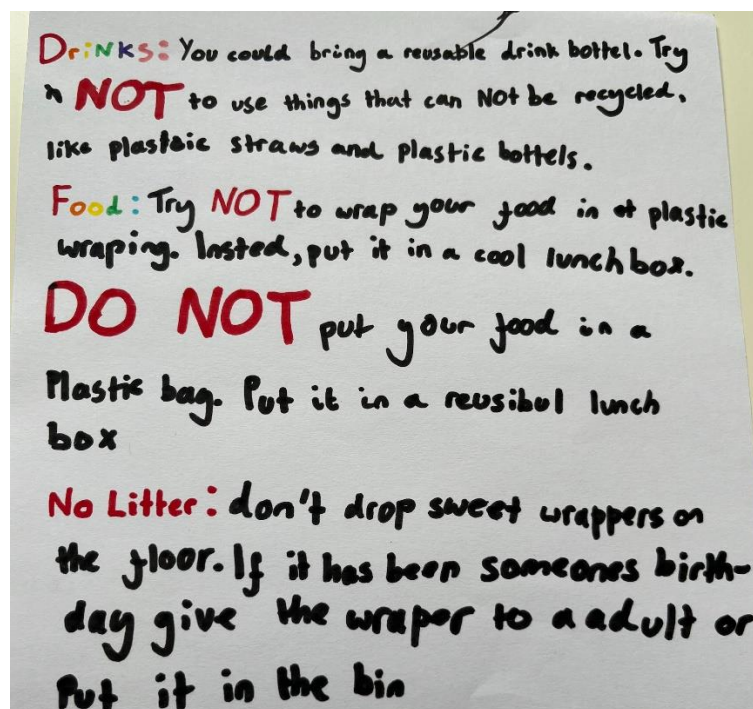 Drinks: You could bring a reusable drink bottel. Try
NOT to use things that can Not be recycled,
like plastsic straws and plastic bottels.
Food: Try NOT to wrap your food in at plastic
wraping. Insted, put it in a cool lunchbox.
DO NOT put your food in a
Plastic bag. Put it in a reusibul lunch
box
No Litter: don't drop sweet wrappers on
the floor. If it has been someones birth-
day give the wraper to a adult or
Put it in the bin